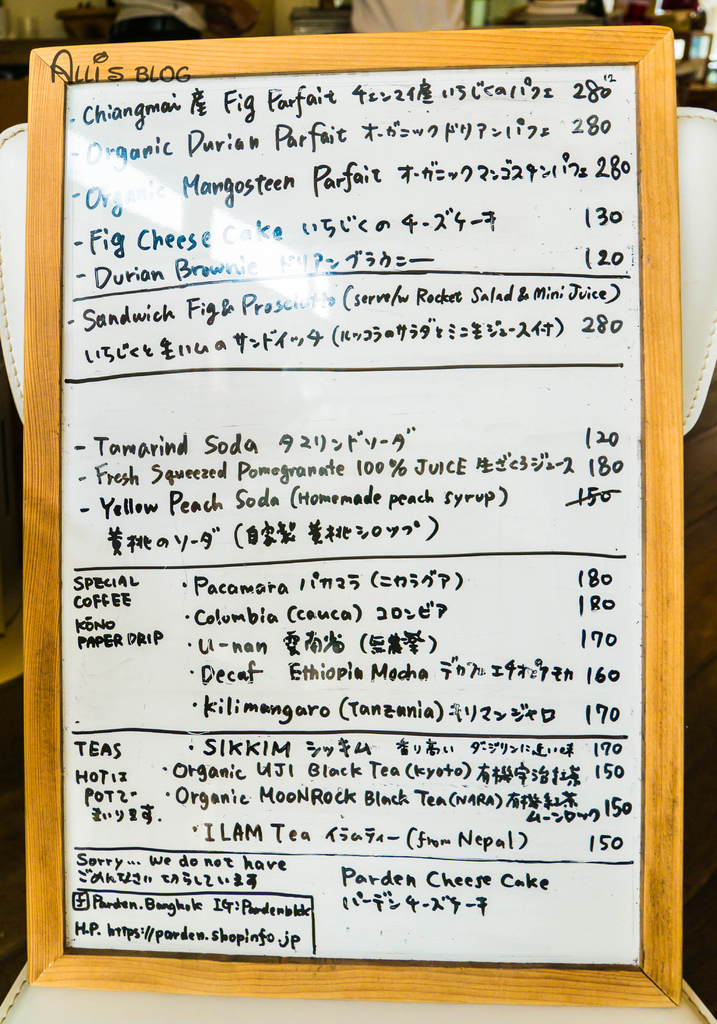 ALLi's BLOG
- Chiangmai 産 Fig Parfait チェンマイ産 いちじくのパフェ 280
- Organic Durian Parfait オーガニックドリアンパフェ 280
- Organic Mangosteen Parfait オーガニックマンゴスチンパフェ 280
- Fig Cheese Cake いちじくの チーズケーキ 130
- Durian Brownie ドリアンブラウニー 120
- Sandwich Fig & Prosciutto (serve/w Rocket Salad & Mini Juice)
いちじくと生ハムの サンドイッチ (ルッコラのサラダとミニ生ジュース付) 280
- Tamarind Soda タマリンドソーダ 120
- Fresh Squeezed Pomegranate 100% JUICE 生ざくろジュース 180
- Yellow Peach Soda (Homemade peach syrup) 150
黄桃のソーダ (自家製 黄桃シロップ)
SPECIAL COFFEE KŌNO PAPER DRIP
・Pacamara パカマラ (ニカラグア) 180
・Columbia (cauca) コロンビア 180
・U-nan 雲南省 (無農薬) 170
・Decaf Ethiopia Mocha デカフェ エチオピアモカ 160
・kilimangaro (Tanzania) キリマンジャロ 170
TEAS HOTは POTで まいります.
・SIKKIM シッキム 香り高い ダージリンに近い味 170
・Organic UJI Black Tea (kyoto) 有機宇治紅茶 150
・Organic MOONROCK Black Tea (NARA) 有機紅茶 ムーンロック 150
・ILAM Tea イラムティー (from Nepal) 150
Sorry... we do not have
ごめんなさい 切らしています
Parden Cheese Cake
パーデンチーズケーキ
f Parden.Bangkok IG: Pardenbkk
H.P. https://parden.shopinfo.jp